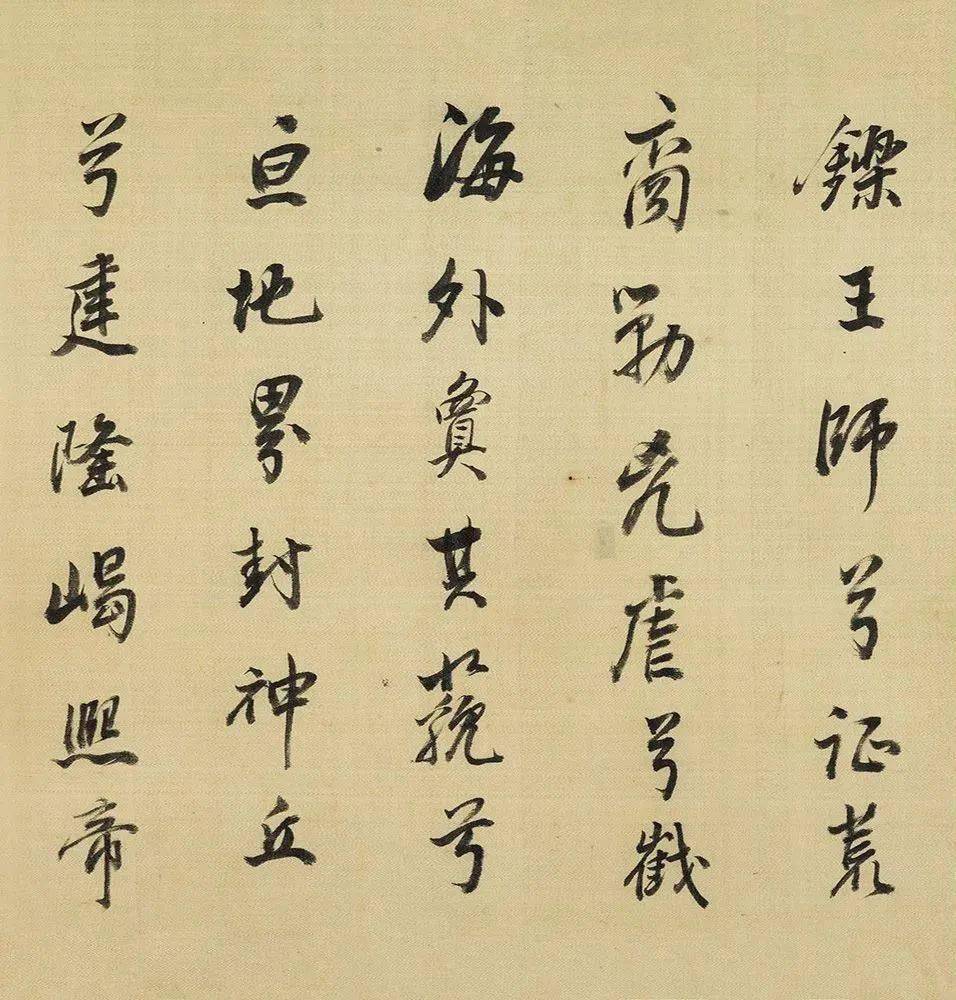 鑠王師兮证荒
裔勦兇虐兮截
海外夐其藐兮
亘地界封神丘
兮建隆嵑熙帝